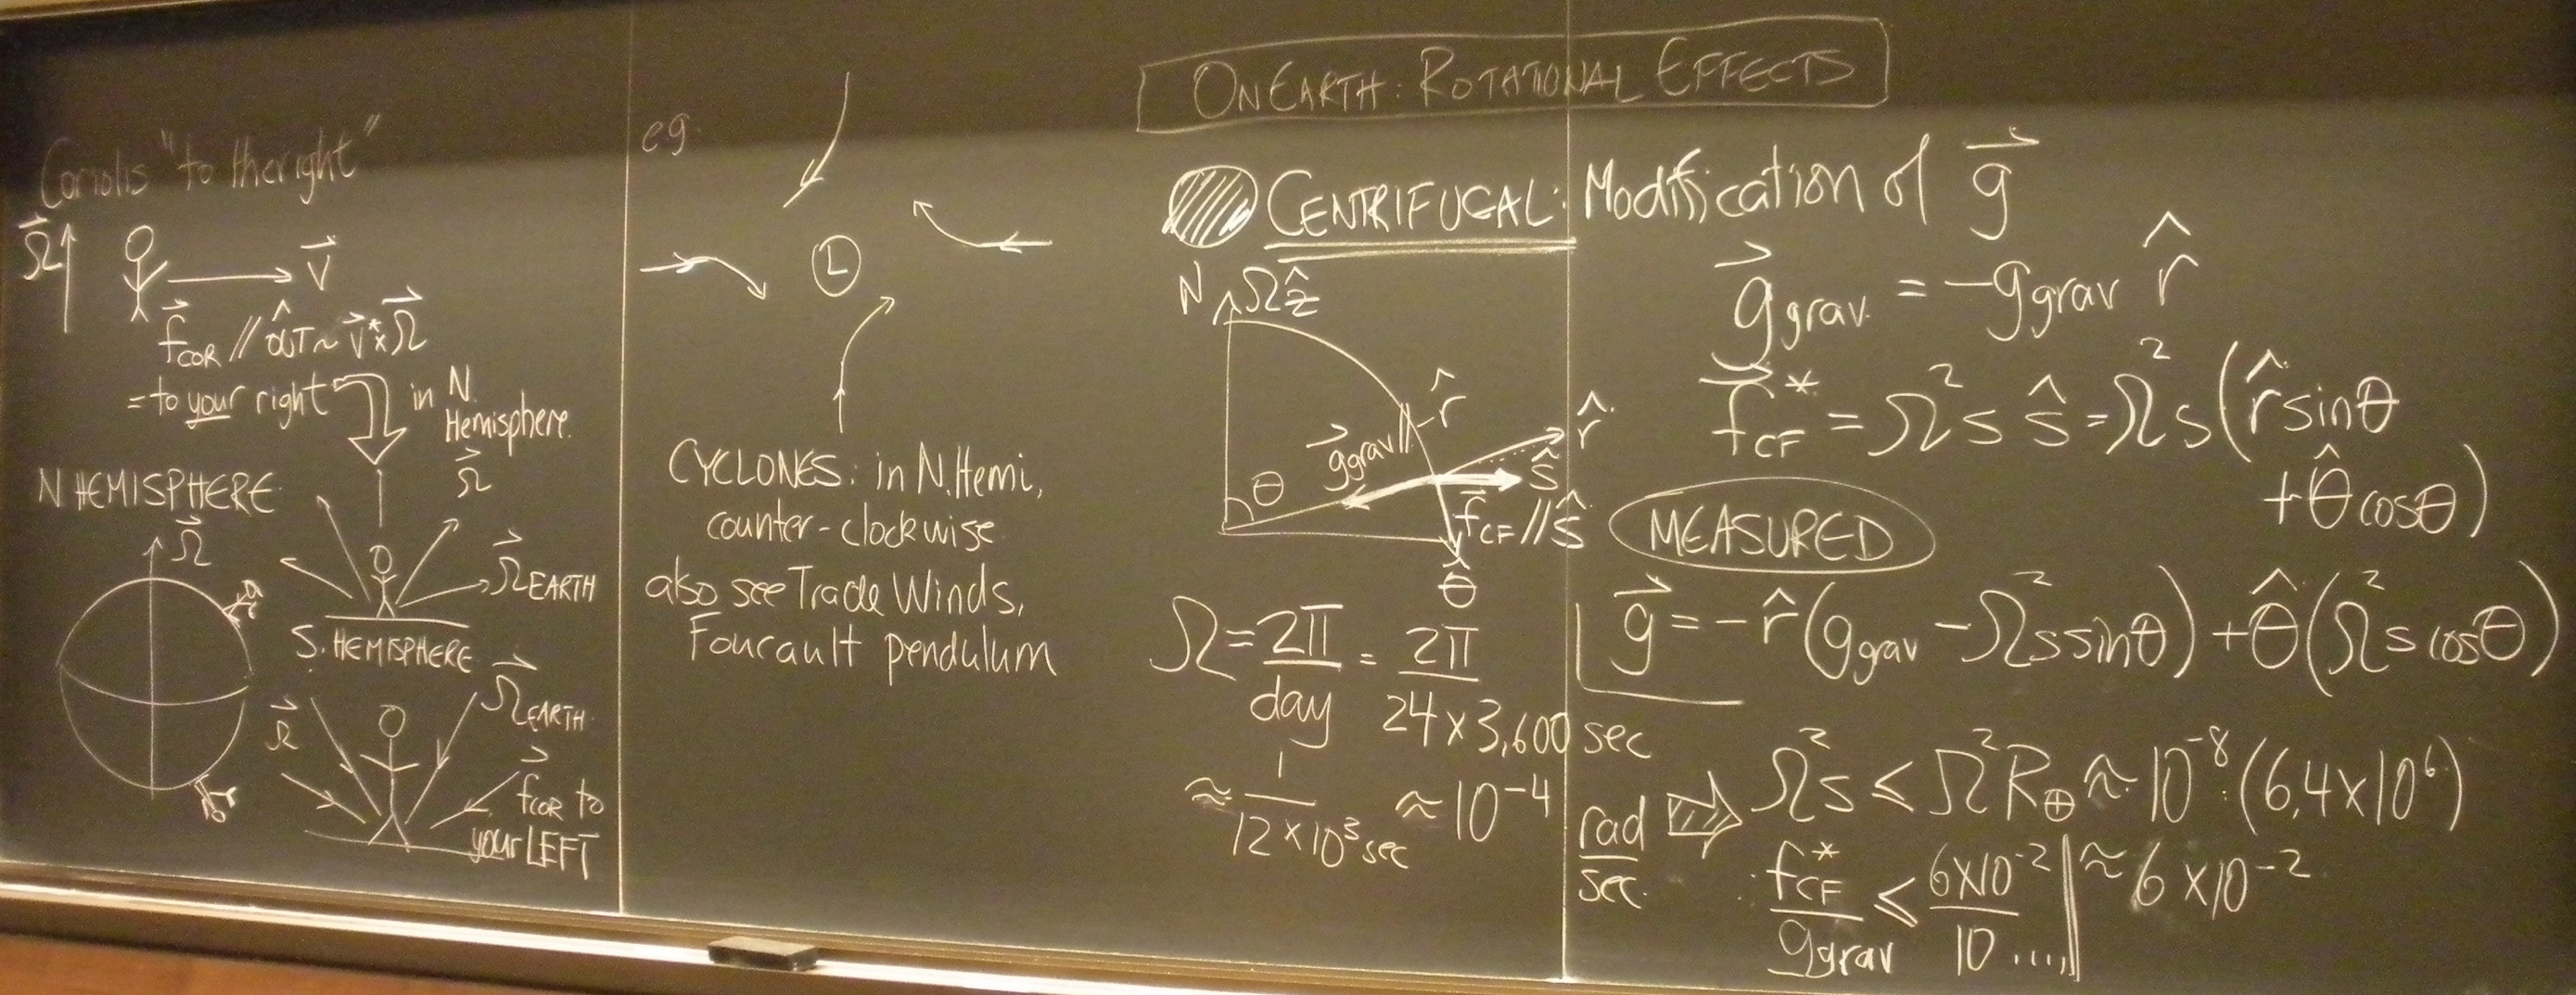 Coriolis "to the right"
Ω⃗
v⃗
f⃗COR // OUT̂ ~ v⃗* x Ω⃗
= to your right
in N.
Hemisphere.
N HEMISPHERE
Ω⃗
Ω⃗
Ω⃗EARTH
S. HEMISPHERE
Ω⃗
Ω⃗EARTH
f⃗COR to
your LEFT
eg.
L
CYCLONES: in N.Hemi,
counter-clockwise
also see Trade Winds,
Foucault pendulum
ON EARTH: ROTATIONAL EFFECTS
CENTRIFUGAL: Modification of g⃗
N Ωẑ
g⃗grav // -r̂
r̂
θ
ŝ
f⃗CF // ŝ
θ̂
Ω = 2π/day = 2π/(24 x 3,600 sec)
≈ 1/(12 x 10³ sec) ≈ 10⁻⁴ rad/sec.
g⃗grav. = -ggrav r̂
f⃗*CF = Ω²s ŝ = Ω²s(r̂ sinθ
+ θ̂ cosθ)
MEASURED
g⃗ = -r̂(ggrav - Ω²s sinθ) + θ̂(Ω²s cosθ)
Ω²s ≤ Ω²R⊕ ≈ 10⁻⁸ (6.4x10⁶)
f*CF/ggrav ≤ 6x10⁻²/10 .... ≈ 6 x10⁻²